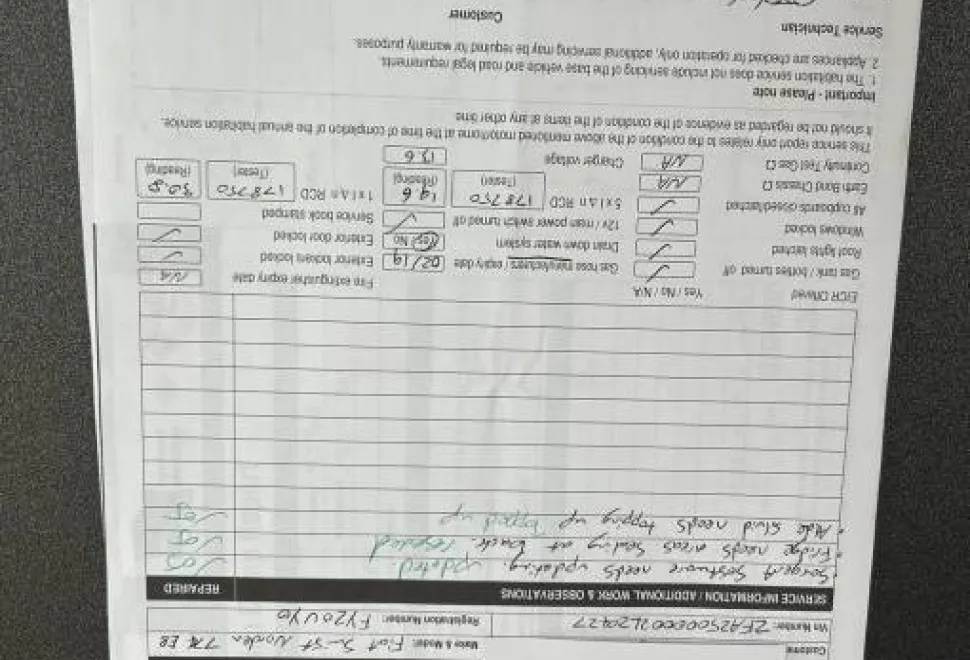 Customer
Make & Model: Fiat
Vin Number: ZFA25000002L20427 Registration Number: FY20UYO
SERVICE INFORMATION / ADDITIONAL WORK & OBSERVATIONS REPAIRED
• Sargent software needs updating. updated. Yes
• Fridge needs areas sealing at back. resealed Yes
• Alde fluid needs topping up topped up Yes
EICR Offered Yes / No / N/A Fire extinguisher expiry date N/A
Gas tank / bottles turned off ✓ Gas hose manufacturers / expiry date 02/19 Exterior lockers locked ✓
Roof lights latched ✓ Drain down water system Yes / No Exterior door locked ✓
Windows locked ✓ 12v / main power switch turned off ✓ Service book stamped
All cupboards closed/latched ✓ 5 x I Δ n RCD 178750 (Tester) 19.6 (Reading) 1 x I Δ n RCD 178750 (Tester) 30.8 (Reading)
Earth Bond Chassis Ω N/A
Continuity Test Gas Ω N/A Charger voltage 13.6
This service report only relates to the condition of the above mentioned motorhome at the time of completion of the annual habitation service.
It should not be regarded as evidence of the condition of the items at any other time
Important - Please note
1. The habitation service does not include servicing of the base vehicle and road legal requirements.
2. Appliances are checked for operation only, additional servicing may be required for warranty purposes.
Service Technician Customer